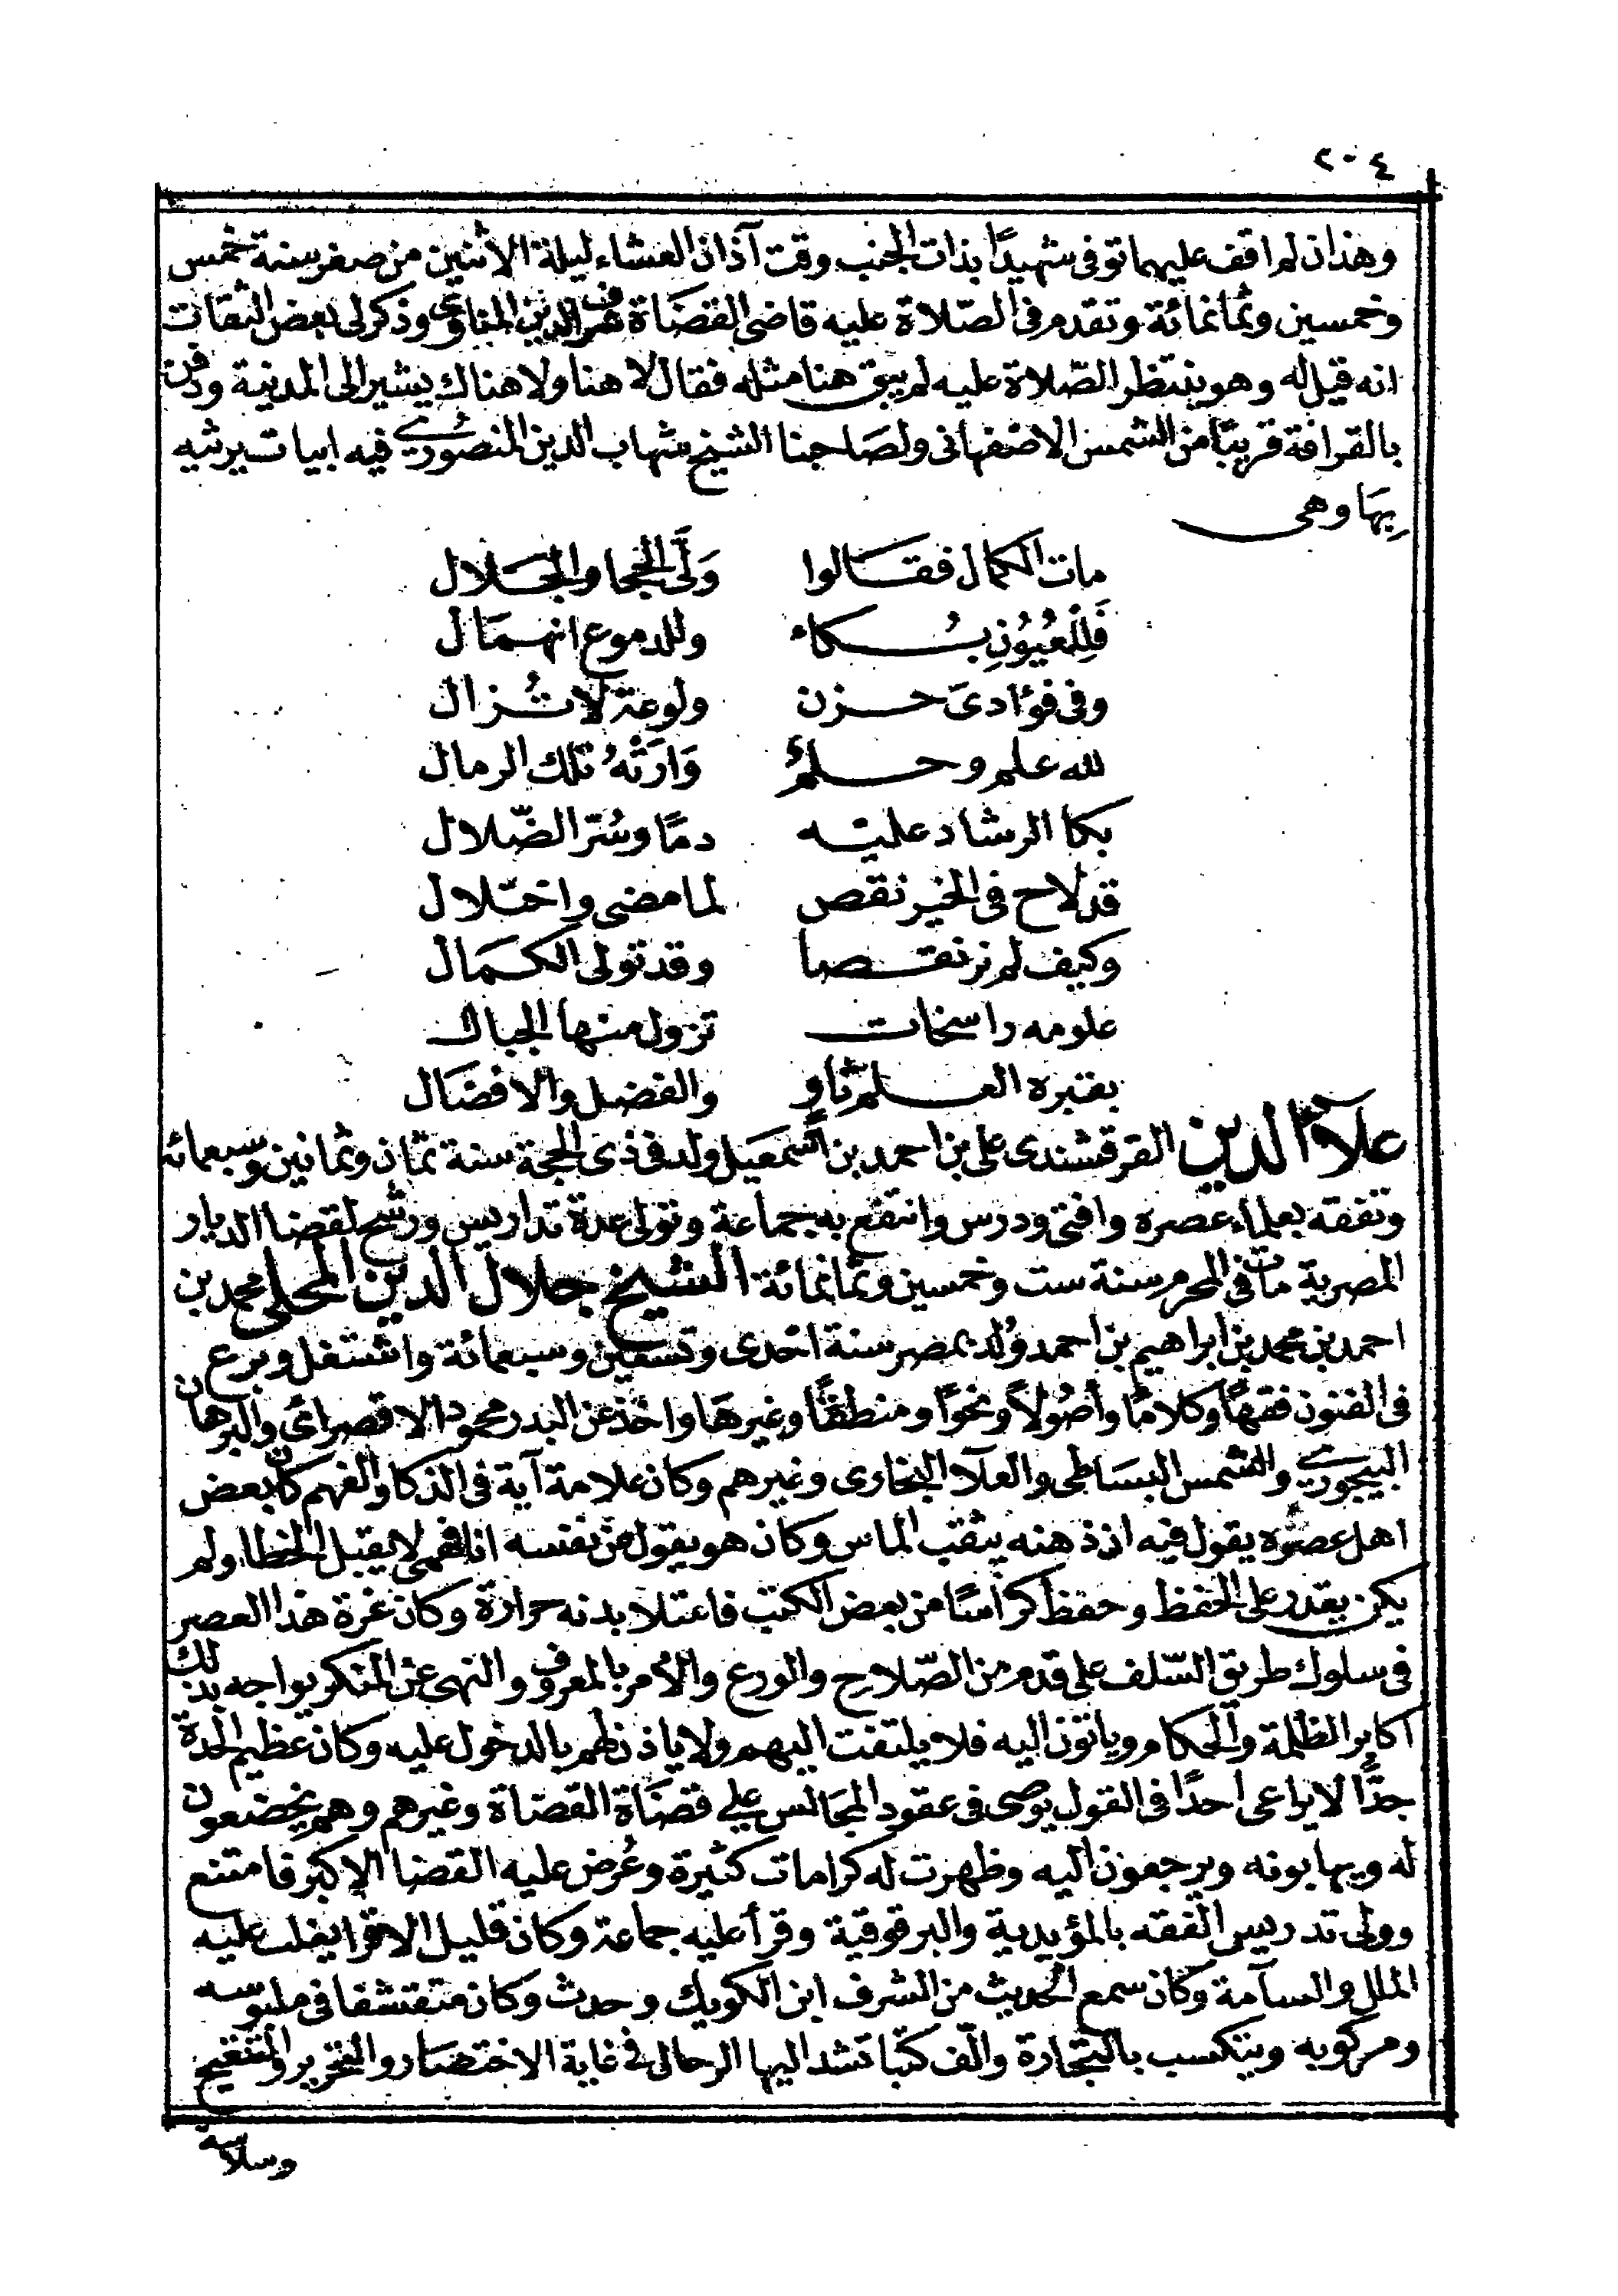 ٢٠٤
وهذان لم اقف عليهما توفى شهيدًا بذات الجنب وقت آذان العشاء ليلة الاثنين من صفر سنة خمس
وخمسين وثمانمائة وتقدم فى الصّلاة عليه قاضى القضَاة شرف الدين المناوى وذكر لى بعض الثقات
انه قيل له وهو ينتظر الصّلاة عليه لم يبق هنا مثله فقال لا هنا ولا هناك يشير الى المدينة ودفن
بالقرافة قريبًا من الشمس الاصْفهانى ولصَاحبنا الشيخ شهاب الدين المنصورى فيه ابيات يرثيه
بِهَا وهى
مات الكمال فقالوا وَلَّى الحجا والجلال
فَلِلْعُيُونِ بُكاء وللدموع انهمَال
وفى فؤادىَ حزن ولوعة لا تُزال
لله علم وحلمٌ وَارَتْهُ تلك الرمال
بكا الرشاد عليه دمًا وسُرّ الضّلال
قد لاح فى الخير نقص لما مضى واختلال
وكيف لم نر نقصا وقد تولى الكمَال
علومه راسخات تزول منها الجبال
بقبره العلم ثاوٍ والفضل والافضَال
علآء الدين القرقشندى على بن احمد بن اسمعيل ولد فى ذى الحجة سنة ثمان وثمانين وسبعمائة
وتفقه بعلماء عصره وافتى ودرس وانتفع به جماعة وتولى عدة تداريس ورشح لقضا الديار
المصرية مات فى المحرم سنة ست وخمسين وثمانمائة الشيخ جلال الدين المحلى محمد بن
احمد بن محمد بن ابراهيم بن احمد وُلد بمصر سنة احْدى وتسعين وسبعمائة واشتغل وبرع
فى الفنون فقهًا وكلامًا وأصُولاً ونحوًا ومنطقًا وغيرهَا واخذ عن البدر محمود الاقصرائى والبرهان
البيجورى والشمس البسَاطى والعلآ البخارى وغيرهم وكان علامة آية فى الذكا والفهم كان بعض
اهل عصره يقول فيه ان ذهنه يثقب الماس وكان هو يقول عن نفسه انا فهمى لا يقبل الخطا ولم
يكن يقدر على الحفظ وحفظ كراسًا من بعض الكتب فاعتلا بدنه حرارة وكان غرة هذا العصر
فى سلوك طريق السّلف على قدم من الصّلاح والورع والأمر بالمعروف والنهى عن المنكر يواجه بذلك
اكابر الظلمة والحكام وياتون اليه فلا يلتفت اليهم ولا ياذن لهم بالدخول عليه وكان عظيم الحدة
جدًّا لا يراعى أحدًا فى القول يوصى فى عقود المجَالس على قضَاة القضاة وغيرهم وهم يخضعون
له ويهابونه ويرجعون اليه وظهرت له كرامات كثيرة وعُرض عليه القضا الاكبر فامتنع
وولى تدريس الفقه بالمؤيدية والبرقوقية وقرأ عليه جماعة وكان قليل الاقرا يغلب عليه
الملل والسآمة وكان سمع الحديث من الشرف ابن الكويك وحدث وكان متقشفا فى ملبوسه
ومركوبه ويتكسب بالتجارة والّف كتبًا تشد اليها الرحال فى غاية الاختصار والتحرير والتنقيح
وسلاسة